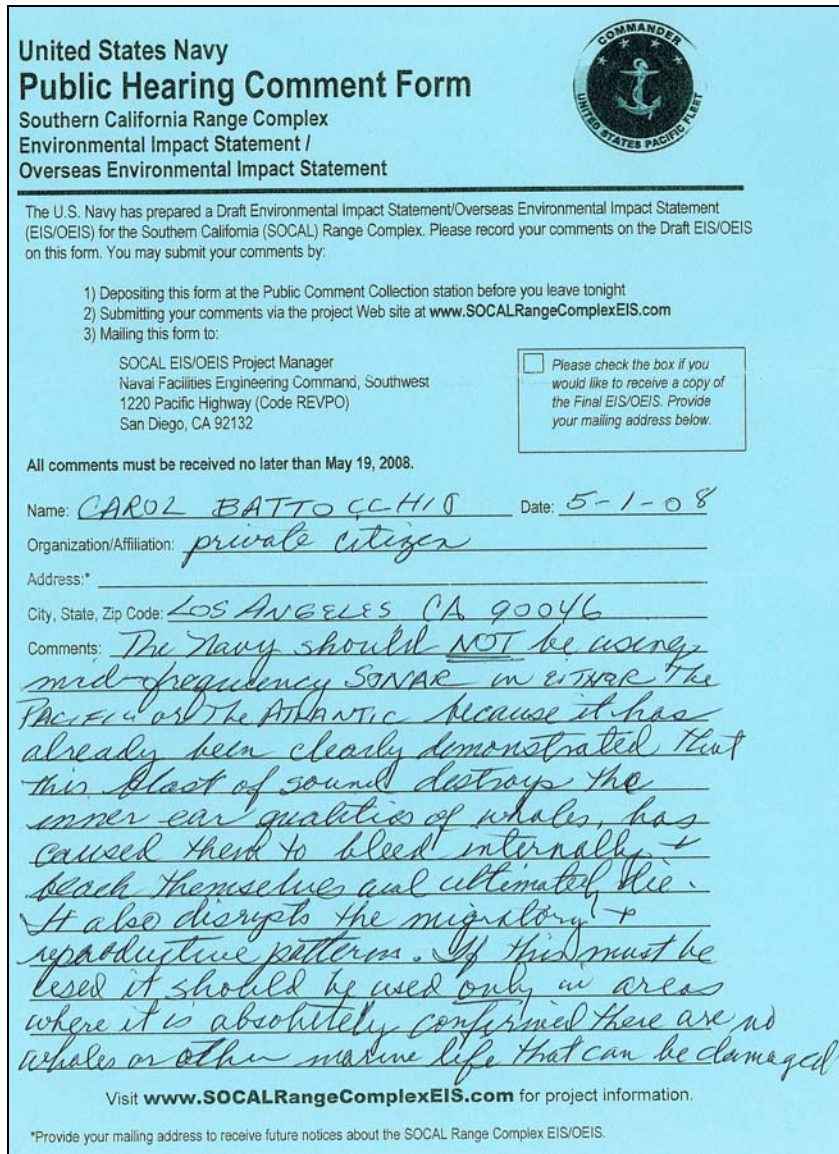 United States Navy
Public Hearing Comment Form
Southern California Range Complex
Environmental Impact Statement /
Overseas Environmental Impact Statement
COMMANDER
UNITED STATES PACIFIC FLEET
The U.S. Navy has prepared a Draft Environmental Impact Statement/Overseas Environmental Impact Statement
(EIS/OEIS) for the Southern California (SOCAL) Range Complex. Please record your comments on the Draft EIS/OEIS
on this form. You may submit your comments by:
1) Depositing this form at the Public Comment Collection station before you leave tonight
2) Submitting your comments via the project Web site at www.SOCALRangeComplexEIS.com
3) Mailing this form to:
SOCAL EIS/OEIS Project Manager
Naval Facilities Engineering Command, Southwest
1220 Pacific Highway (Code REVPO)
San Diego, CA 92132
Please check the box if you
would like to receive a copy of
the Final EIS/OEIS. Provide
your mailing address below.
All comments must be received no later than May 19, 2008.
Name: CAROL BATTOCCHIO Date: 5-1-08
Organization/Affiliation: private citizen
Address:*
City, State, Zip Code: LOS ANGELES, CA 90046
Comments: The Navy should NOT be using
mid-frequency SONAR in EITHER The
PACIFIC or The ATLANTIC because it has
already been clearly demonstrated that
this blast of sound destroys the
inner ear qualities of whales, has
caused them to bleed internally +
beach themselves and ultimately die.
It also disrupts the migratory +
reproductive patterns. If this must be
used it should be used only in areas
where it is absolutely confirmed there are no
whales or other marine life that can be damaged
Visit www.SOCALRangeComplexEIS.com for project information.
*Provide your mailing address to receive future notices about the SOCAL Range Complex EIS/OEIS.